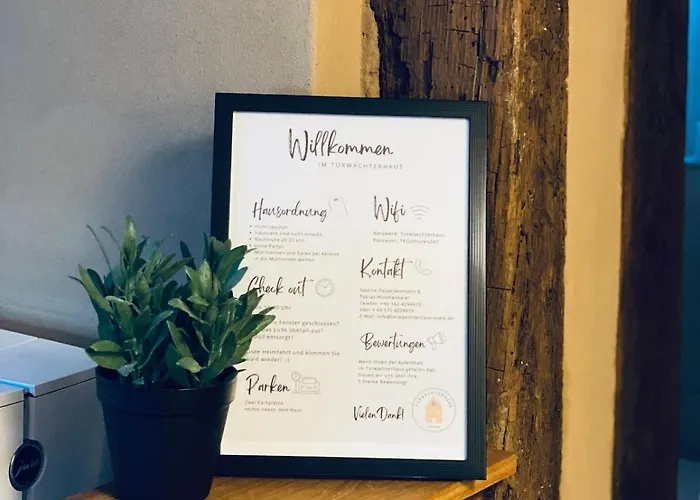 Willkommen
IM TORWÄCHTERHAUS
Hausordnung
nicht rauchen
Haustiere sind nicht erlaubt
Nachtruhe ab 22 Uhr
keine Partys
Müll trennen und bei Abreise
in die Mülltonnen werfen
Check out
Uhr
Fenster geschlossen?
Licht überall aus?
entsorgt?
Gute Heimfahrt und kommen Sie
bald wieder! :-)
Parken
Zwei Parkplätze
rechts neben dem Haus
Wifi
Netzwerk: Torwaechterhaus
Passwort:
Kontakt
Nadine
Tobias
Telefon: +49 162
oder: + 49 175
E-Mail:
Bewertungen
Wenn Ihnen der Aufenthalt
im Torwächterhaus gefallen hat,
freuen wir uns über Ihre
5 Sterne-Bewertung!
Vielen Dank!
TORWÄCHTERHAUS
jura